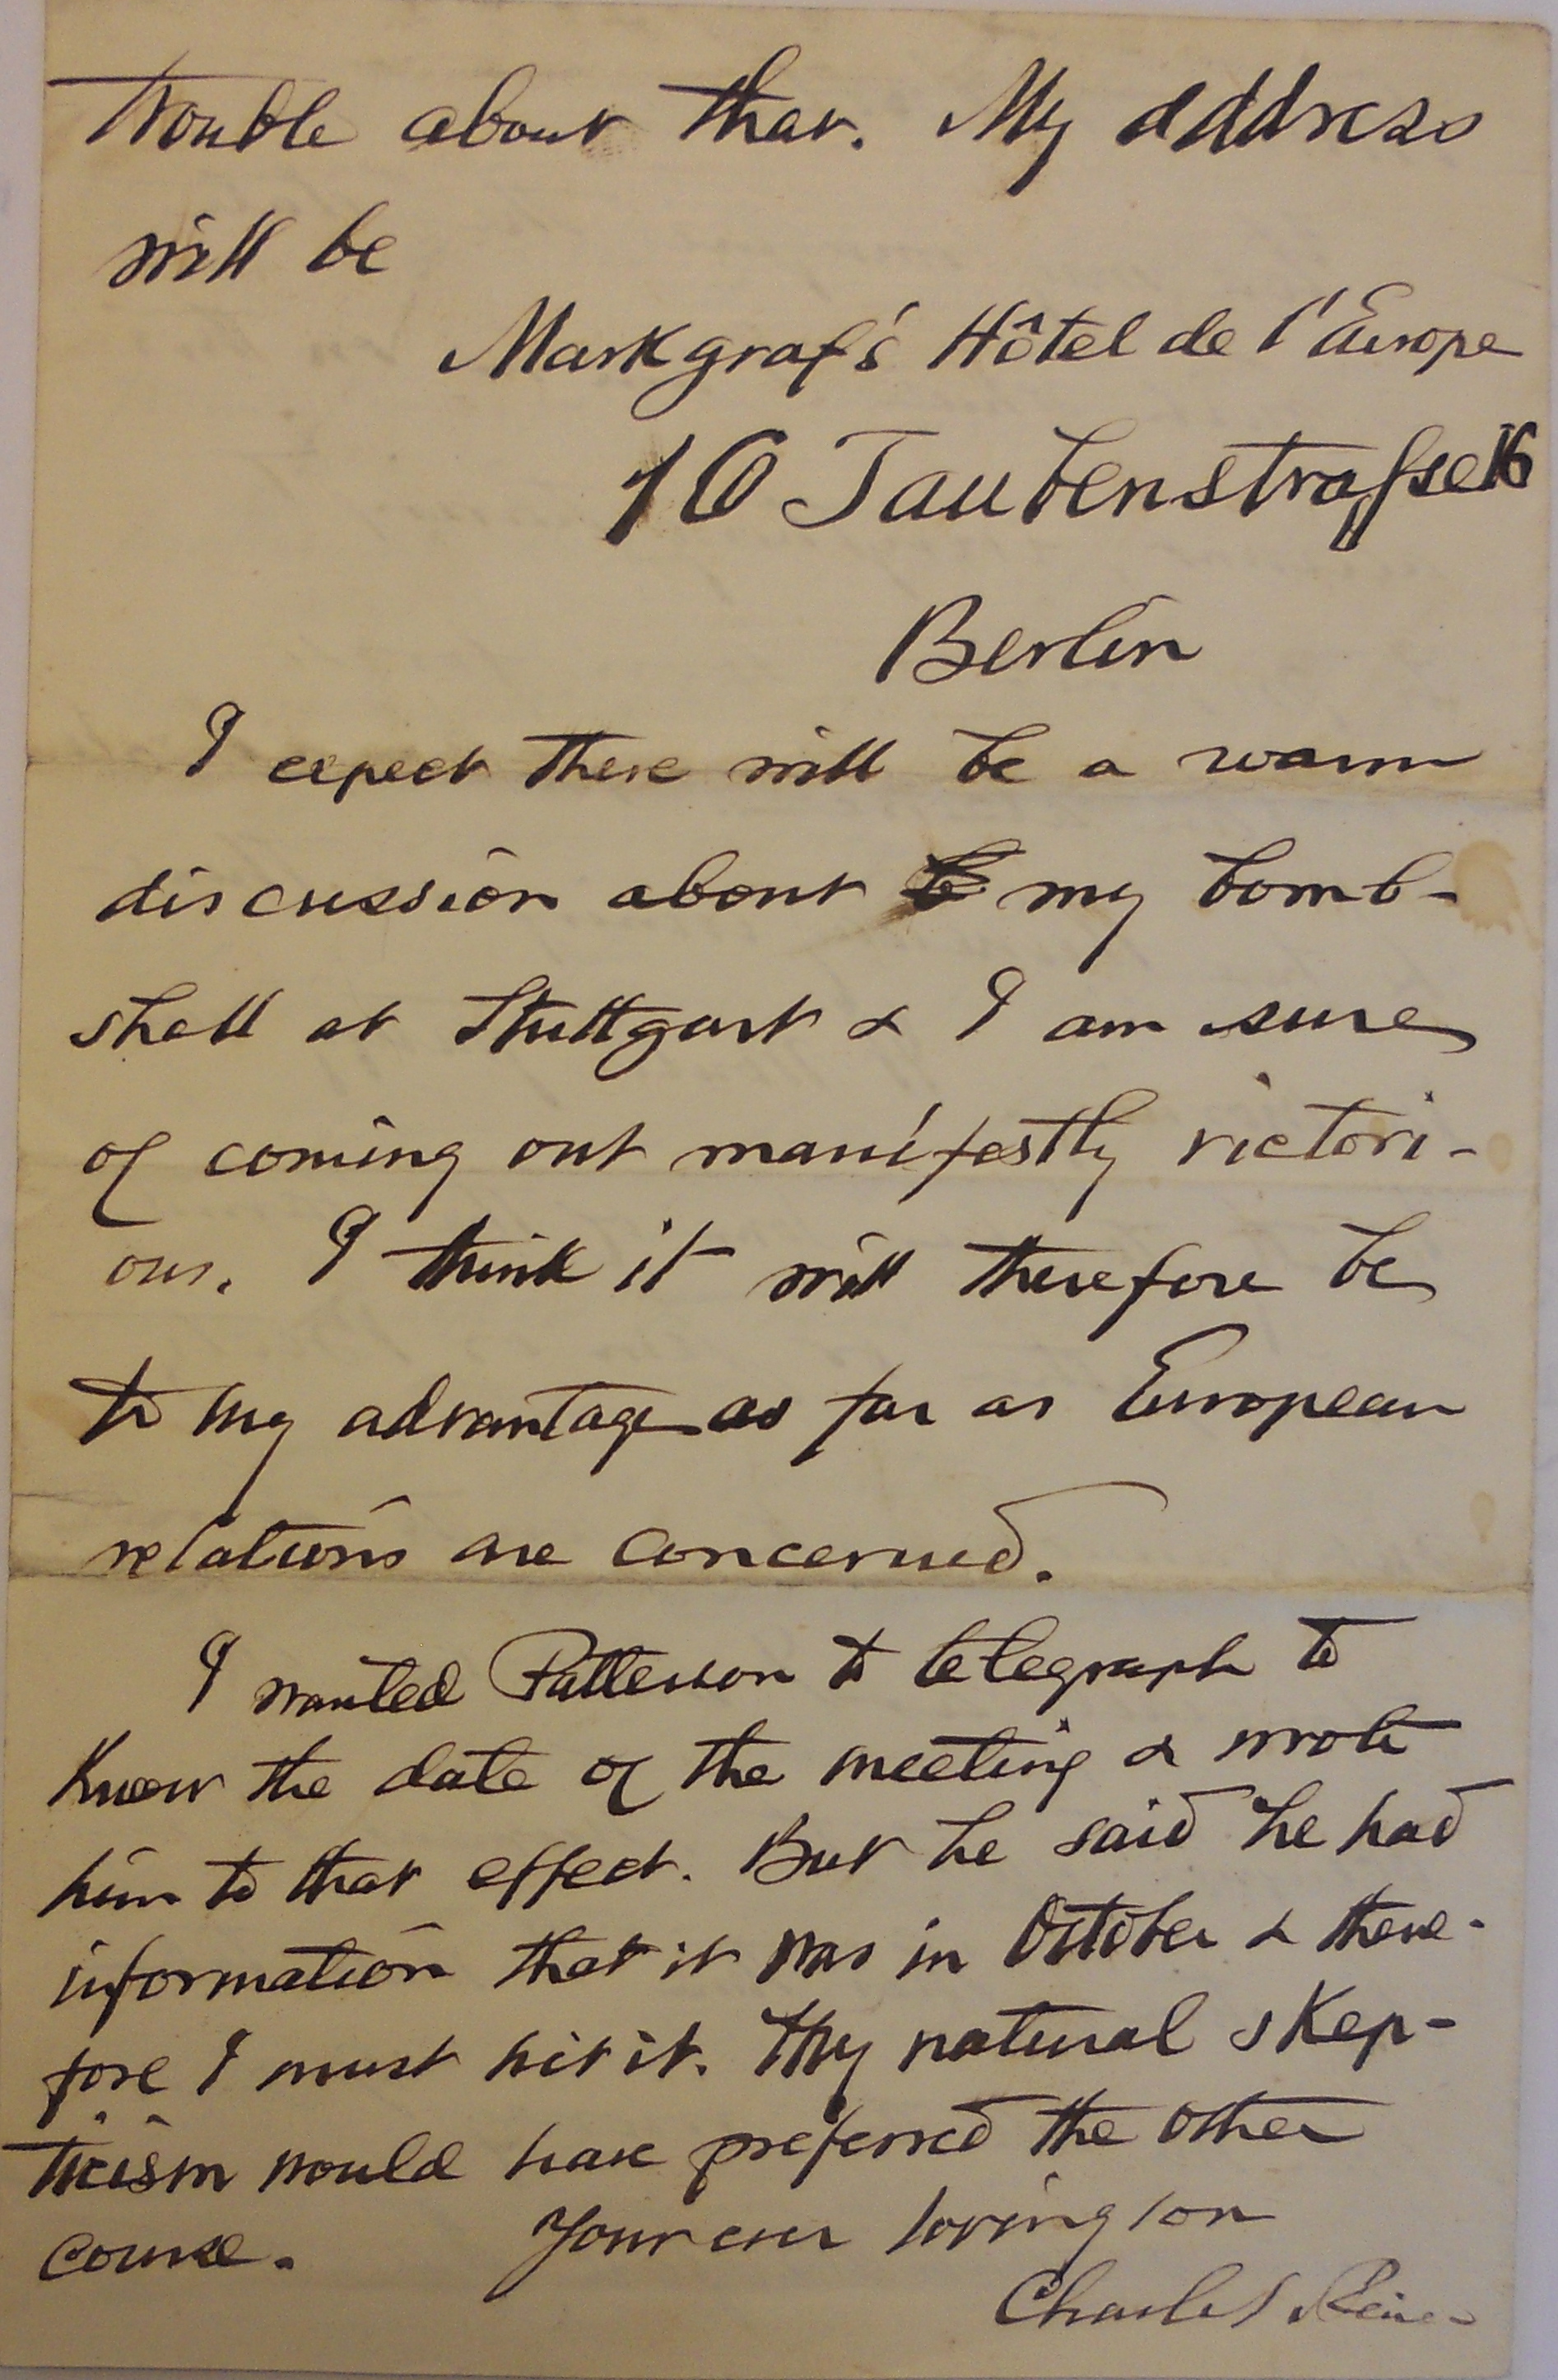 trouble about that. My address
will be
Markgraf's Hôtel de l'Europe
16 Taubenstrasse 16
Berlin
I expect there will be a warm
discussion about my bomb-
shell at Stuttgart & I am sure
of coming out manifestly victori-
ous. I think it will therefore be
to my advantage as far as European
relations are concerned.
I wanted Patterson to telegraph to
know the date of the meeting & wrote
him to that effect. But he said he had
information that it was in October & there-
fore I must hit it. My natural skep-
ticism would have preferred the other
course. Your ever loving son
Charles S Peirce